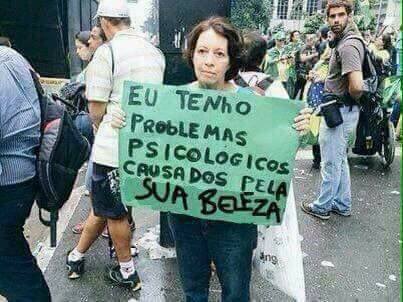 EU TENHO
PROBLEMAS
PSICOLÓGICOS
CAUSADOS PELA
SUA BELEZA